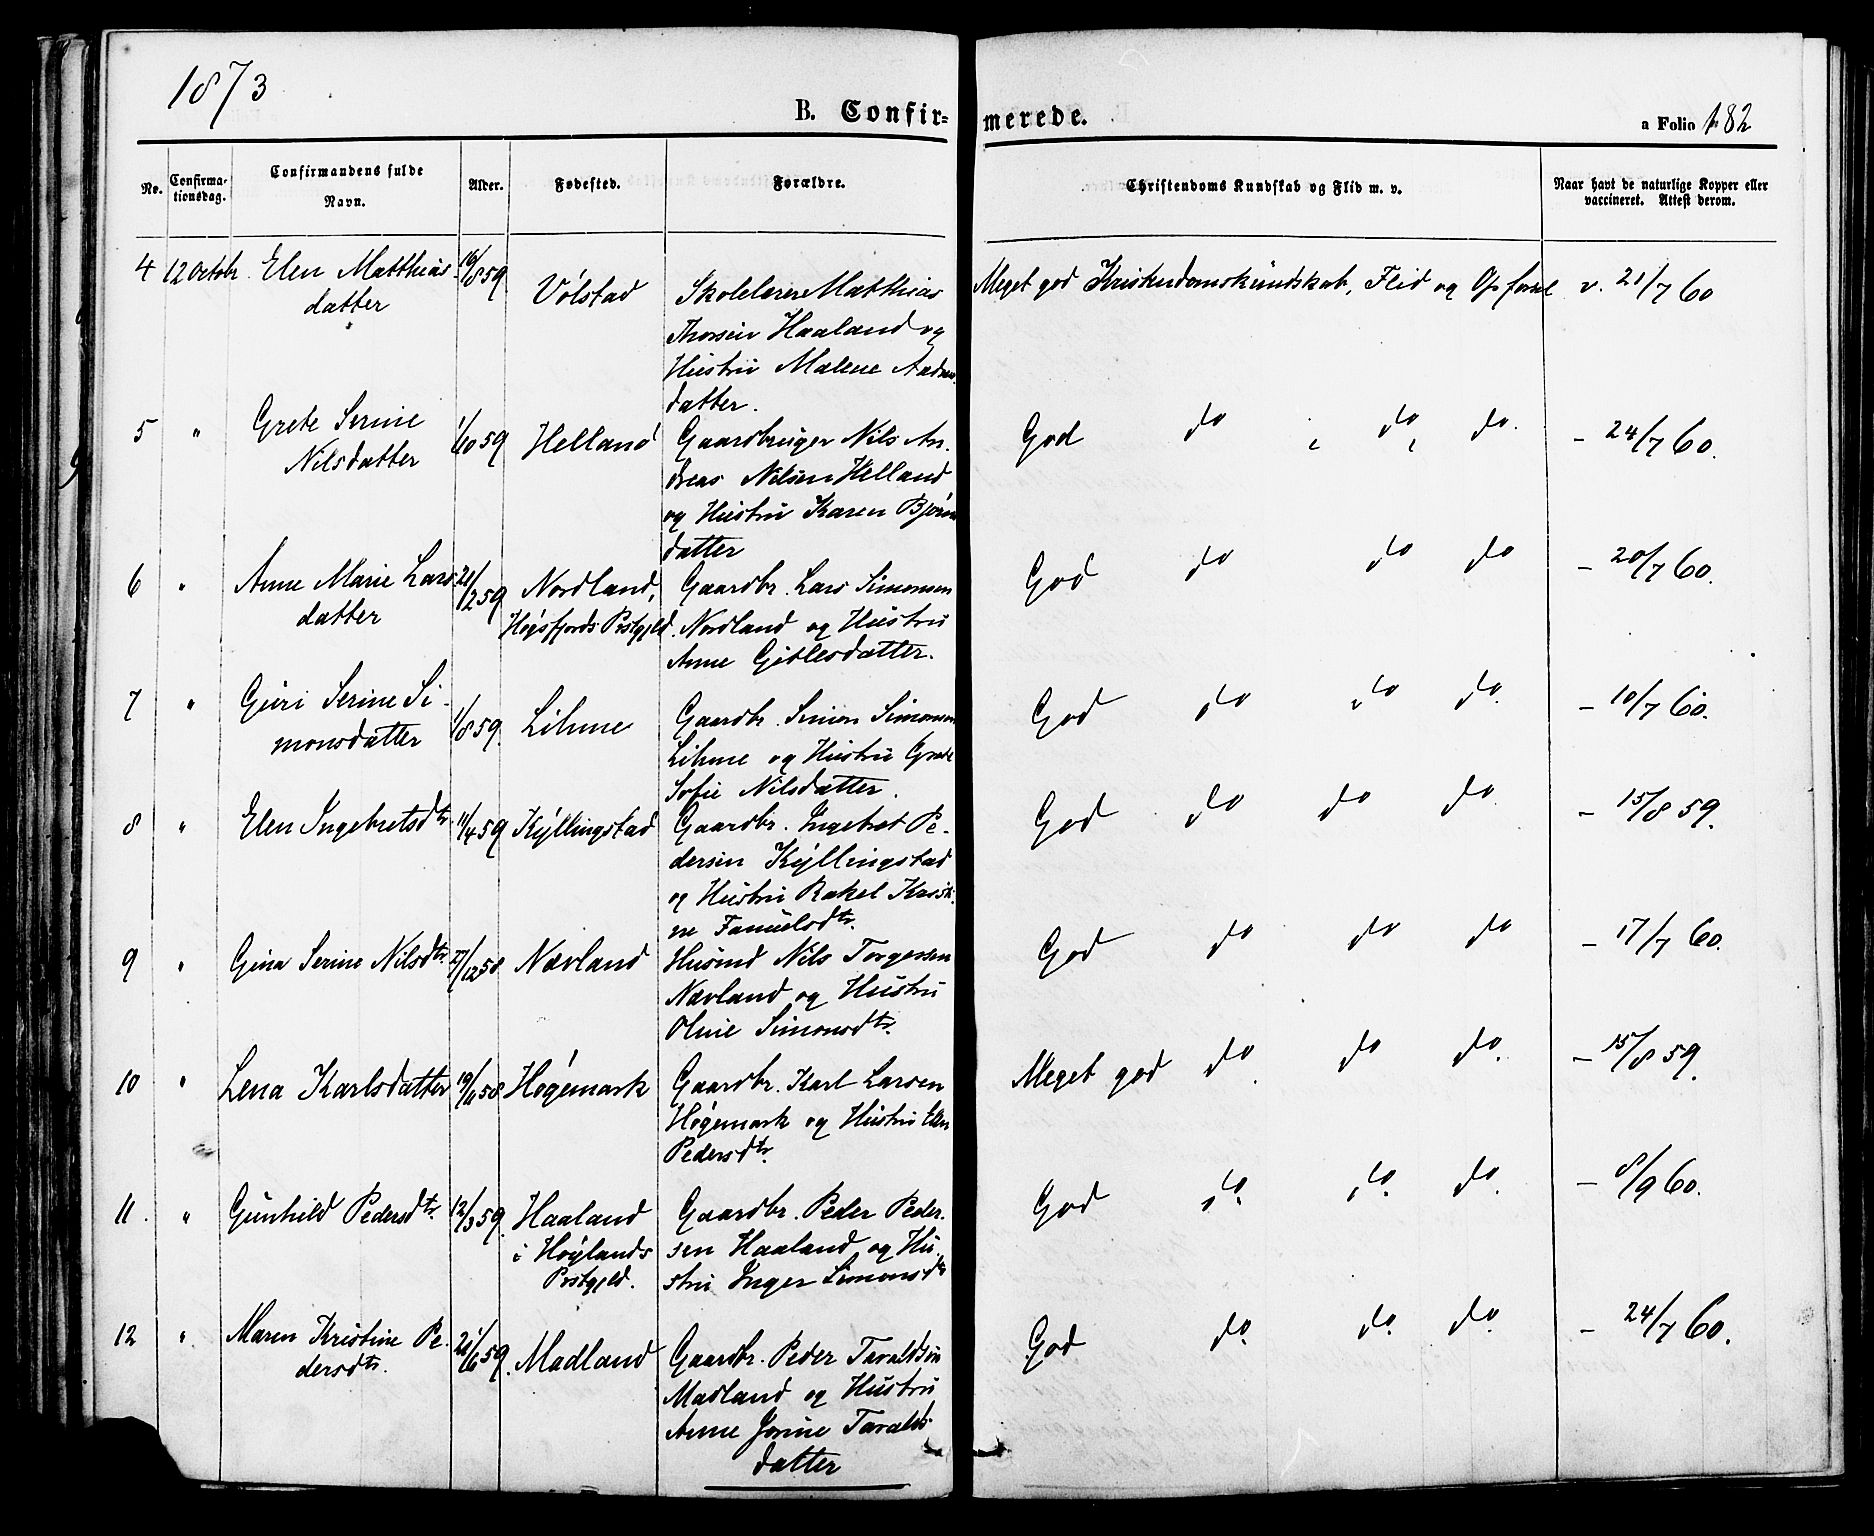 1873
B. Confir-
merede.
a Folio 182
No.
Confirma-
tionsdag.
Confirmandens fulde
Navn.
Alder.
Fødested.
Forældre.
Christendoms Kundskab og Flid m. v.
Naar havt de naturlige Kopper eller
vaccineret. Attest derom.
4 12 Octobr. Elen Matthias-
datter
/8 59
Vølstad
Skolelærer Matthias
Thorsen Haaland og
Hustru Malene
datter.
Meget god Kristendomskundskab, Flid og Opførsel v. 21/7 60
5 " Grete Serine
Nilsdatter
1/10 59
Helland
Gaardbruger Nils An-
dreas Nilsen Helland
og Hustru Karen Bjørns
datter
God do do do. - 24/7 60.
6 " Anne Marie Lars
datter
21/2 59
Nordland,
Høgsfjords Prstgjeld.
Gaardbr. Lars Simonsen
Nordland og Hustru
Anne Gitlesdatter.
God do do do - 20/7 60.
7 " Guri Serine Si-
monsdatter
1/8 59.
Lihme
Gaardbr. Simon Simonsen
Lihme og Hustru Grete
Sofie Nilsdatter.
God do do do. - 10/7 60.
8 " Elen Ingebretsdtr
11/4 59
Kyllingstad
Gaardbr. Ingebret Pe-
dersen Kyllingstad
og Hustru Rakel Kristi-
ne Fanuelsdtr.
God do do do - 15/8 59.
9 " Gina Serine Nilsdtr.
27/12 58.
Nævland
Husmd Nils Torgersen
Nævland og Hustru
Oline Simonsdtr.
God do do do - 17/7 60.
10 " Lena Karlsdatter
19/11 58
Høgemark
Gaardbr. Karl Larsen
Høgemark og Hustru Elen
Pedersdtr.
Meget god do do do. - 15/8 59.
11. " Gunhild Pedersdtr.
12/3 59.
Haaland
i Høylands
Prstgjeld.
Gaardbr. Peder Peder-
sen Haaland og Hu-
stru Inger Simonsdtr
God do. do. do. - 8/9 60.
12 " Maren Kristine Pe-
dersdtr.
21/6 59.
Madland
Gaardbr. Peder Taraldsen
Madland og Hustru
Anne Jorine Taralds-
datter
God do. do. do. - 24/7 60.